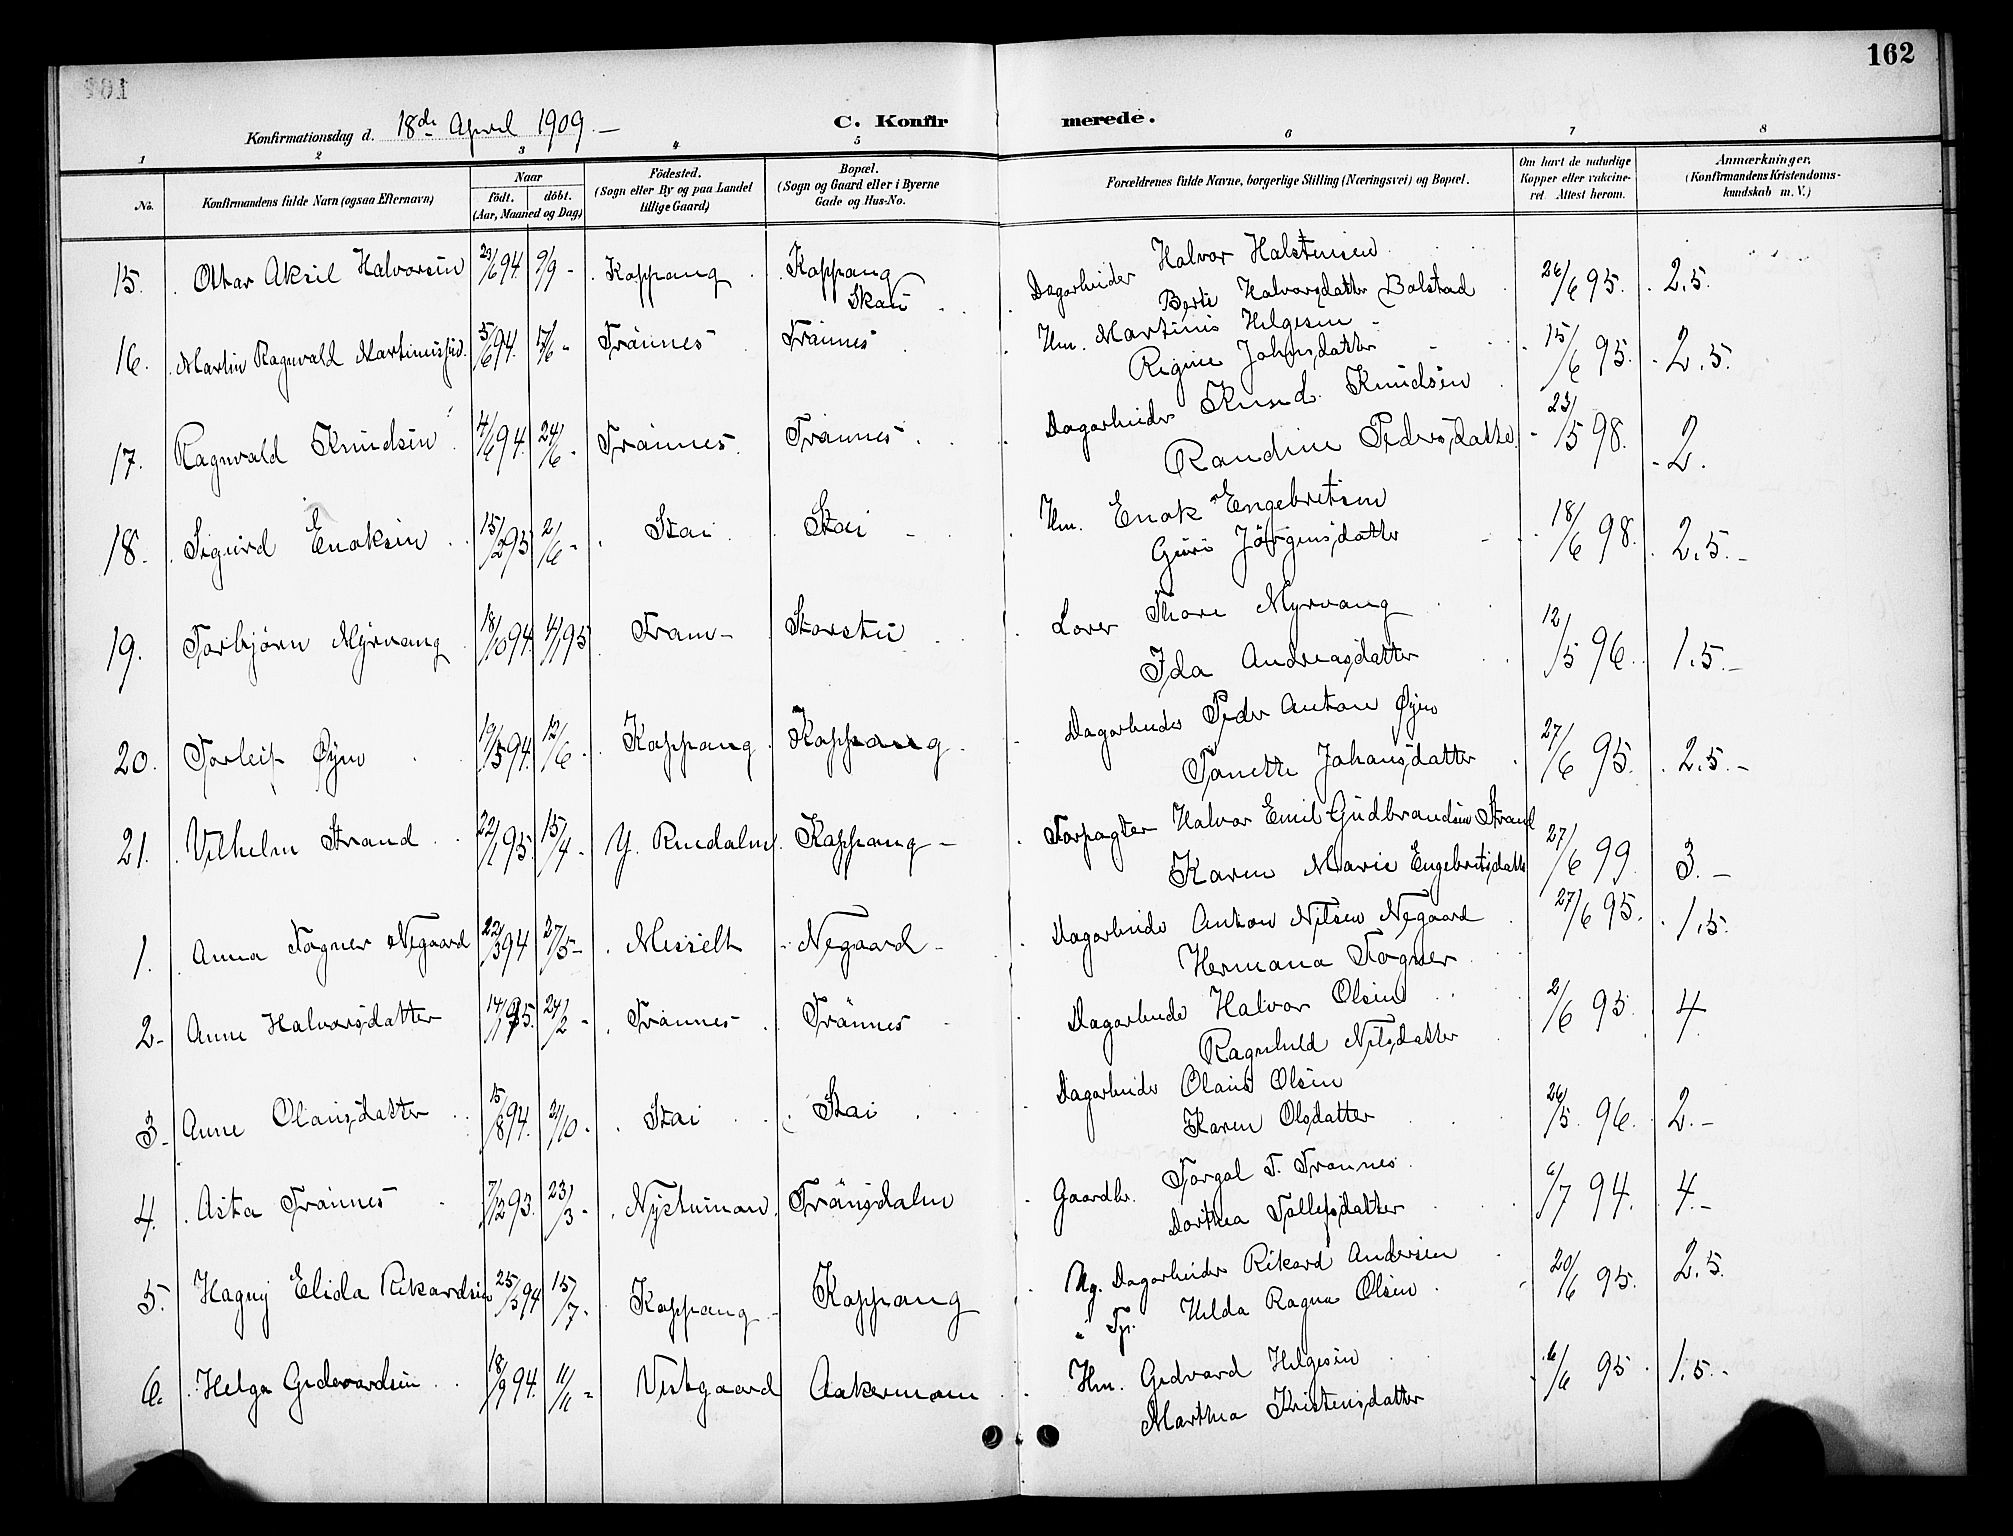 162
Konfirmationsdag d. 18de April 1909. —
C. Konfirmerede.
1 2 3 4 5 6 7 8
No.
Konfirmandens fulde Navn (ogsaa Efternavn)
Naar
födt. döbt.
(Aar, Maaned og Dag)
Födested.
(Sogn eller By og paa Landet
tillige Gaard)
Bopæl.
(Sogn og Gaard eller i Byerne
Gade og Hus-No.
Forældrenes fulde Navne, borgerlige Stilling (Næringsvei) og Bopæl.
Om havt de naturlige
Kopper eller vakcine-
ret. Attest herom.
Anmærkninger,
(Konfirmandens Kristendoms-
kundskab m. V.)
15. Ottar Aksel Halvorsen 9/9 - Koppang Koppang Dagarbeider Halvor Halstensen 26/6 95. 2.5.
Skau Berte Halvorsdatter Bolstad
16. Martin Ragnvald Martiniussen 5/6 94. 17/6 - Trønnes Trønnes Hm. Martinis Helgesen 15/6 95. 2.5.
Regine Johnsdatter
17. Ragnvald Knudsen 4/6 94. 24/6 - Trønnes Trønnes Dagarbeider Knud Knudsen 23/5 98. 2.
Randine Pedersdatter
18. Sigurd Enoksen 15/2 95 2/6 - Stai Stai Hm. Enok Engebretsen 18/6 98. 2.5. -
Guri Jörgensdatter
19. Torbjörn Myrvang 18/10 94. 4/1 95 Fram- Storstu Lover Thore Myrvang 12/5 96. 1.5. -
Ida Andreasdatter
20. Torleif Øyen 19/5 94. 12/6 - Koppang Koppang Dagarbeider Peder Anton Øyen 27/6 95. 2.5. -
Tanette Johansdatter
21. Vilhelm Strand 22/1 95. 15/4 - Y. Rendalen Koppang - Forpagter Halvor Emil Gudbrandsen Strand 27/6 99. 3. -
Karen Marie Engebretsdatter
1. Anna Fogner Negaard 22/3 94 27/5 - Messelt Negaard - Dagarbeider Anton Nilsen Negaard 27/6 95. 1.5.
Hermana Fogner
2. Anne Halvorsdatter 14/1 95. 24/2 - Trønnes Trønnes Dagarbeider Halvor Olsen 2/6 95. 4.
Ragnhild Nilsdatter
3. Anne Olausdatter 15/8 94. 21/10 - Stai Stai Dagarbeider Olaus Olsen 26/5 96. 2. -
Karen Olsdatter
4. Asta Trønnes 7/12 93. 23/3 - Nystuman Trønsdalen Gaardbr. Torgal T. Trønnes 6/7 94. 4. -
Dorthea Tollefsdatter
5. Hagny Elida Rikardsen 25/3 94 15/7 - Koppang Koppang Ug. Dagarbeider Rikard Andersen 20/6 95. 2.5.
" Tp. Hilda Ragna Olsen
6. Helga Gedevardsen 18/9 94. 11/11 - Vestgaard Aakermoen Hm. Gedvard Helgesen 6/6 95. 1.5. -
Marthea Kristensdatter